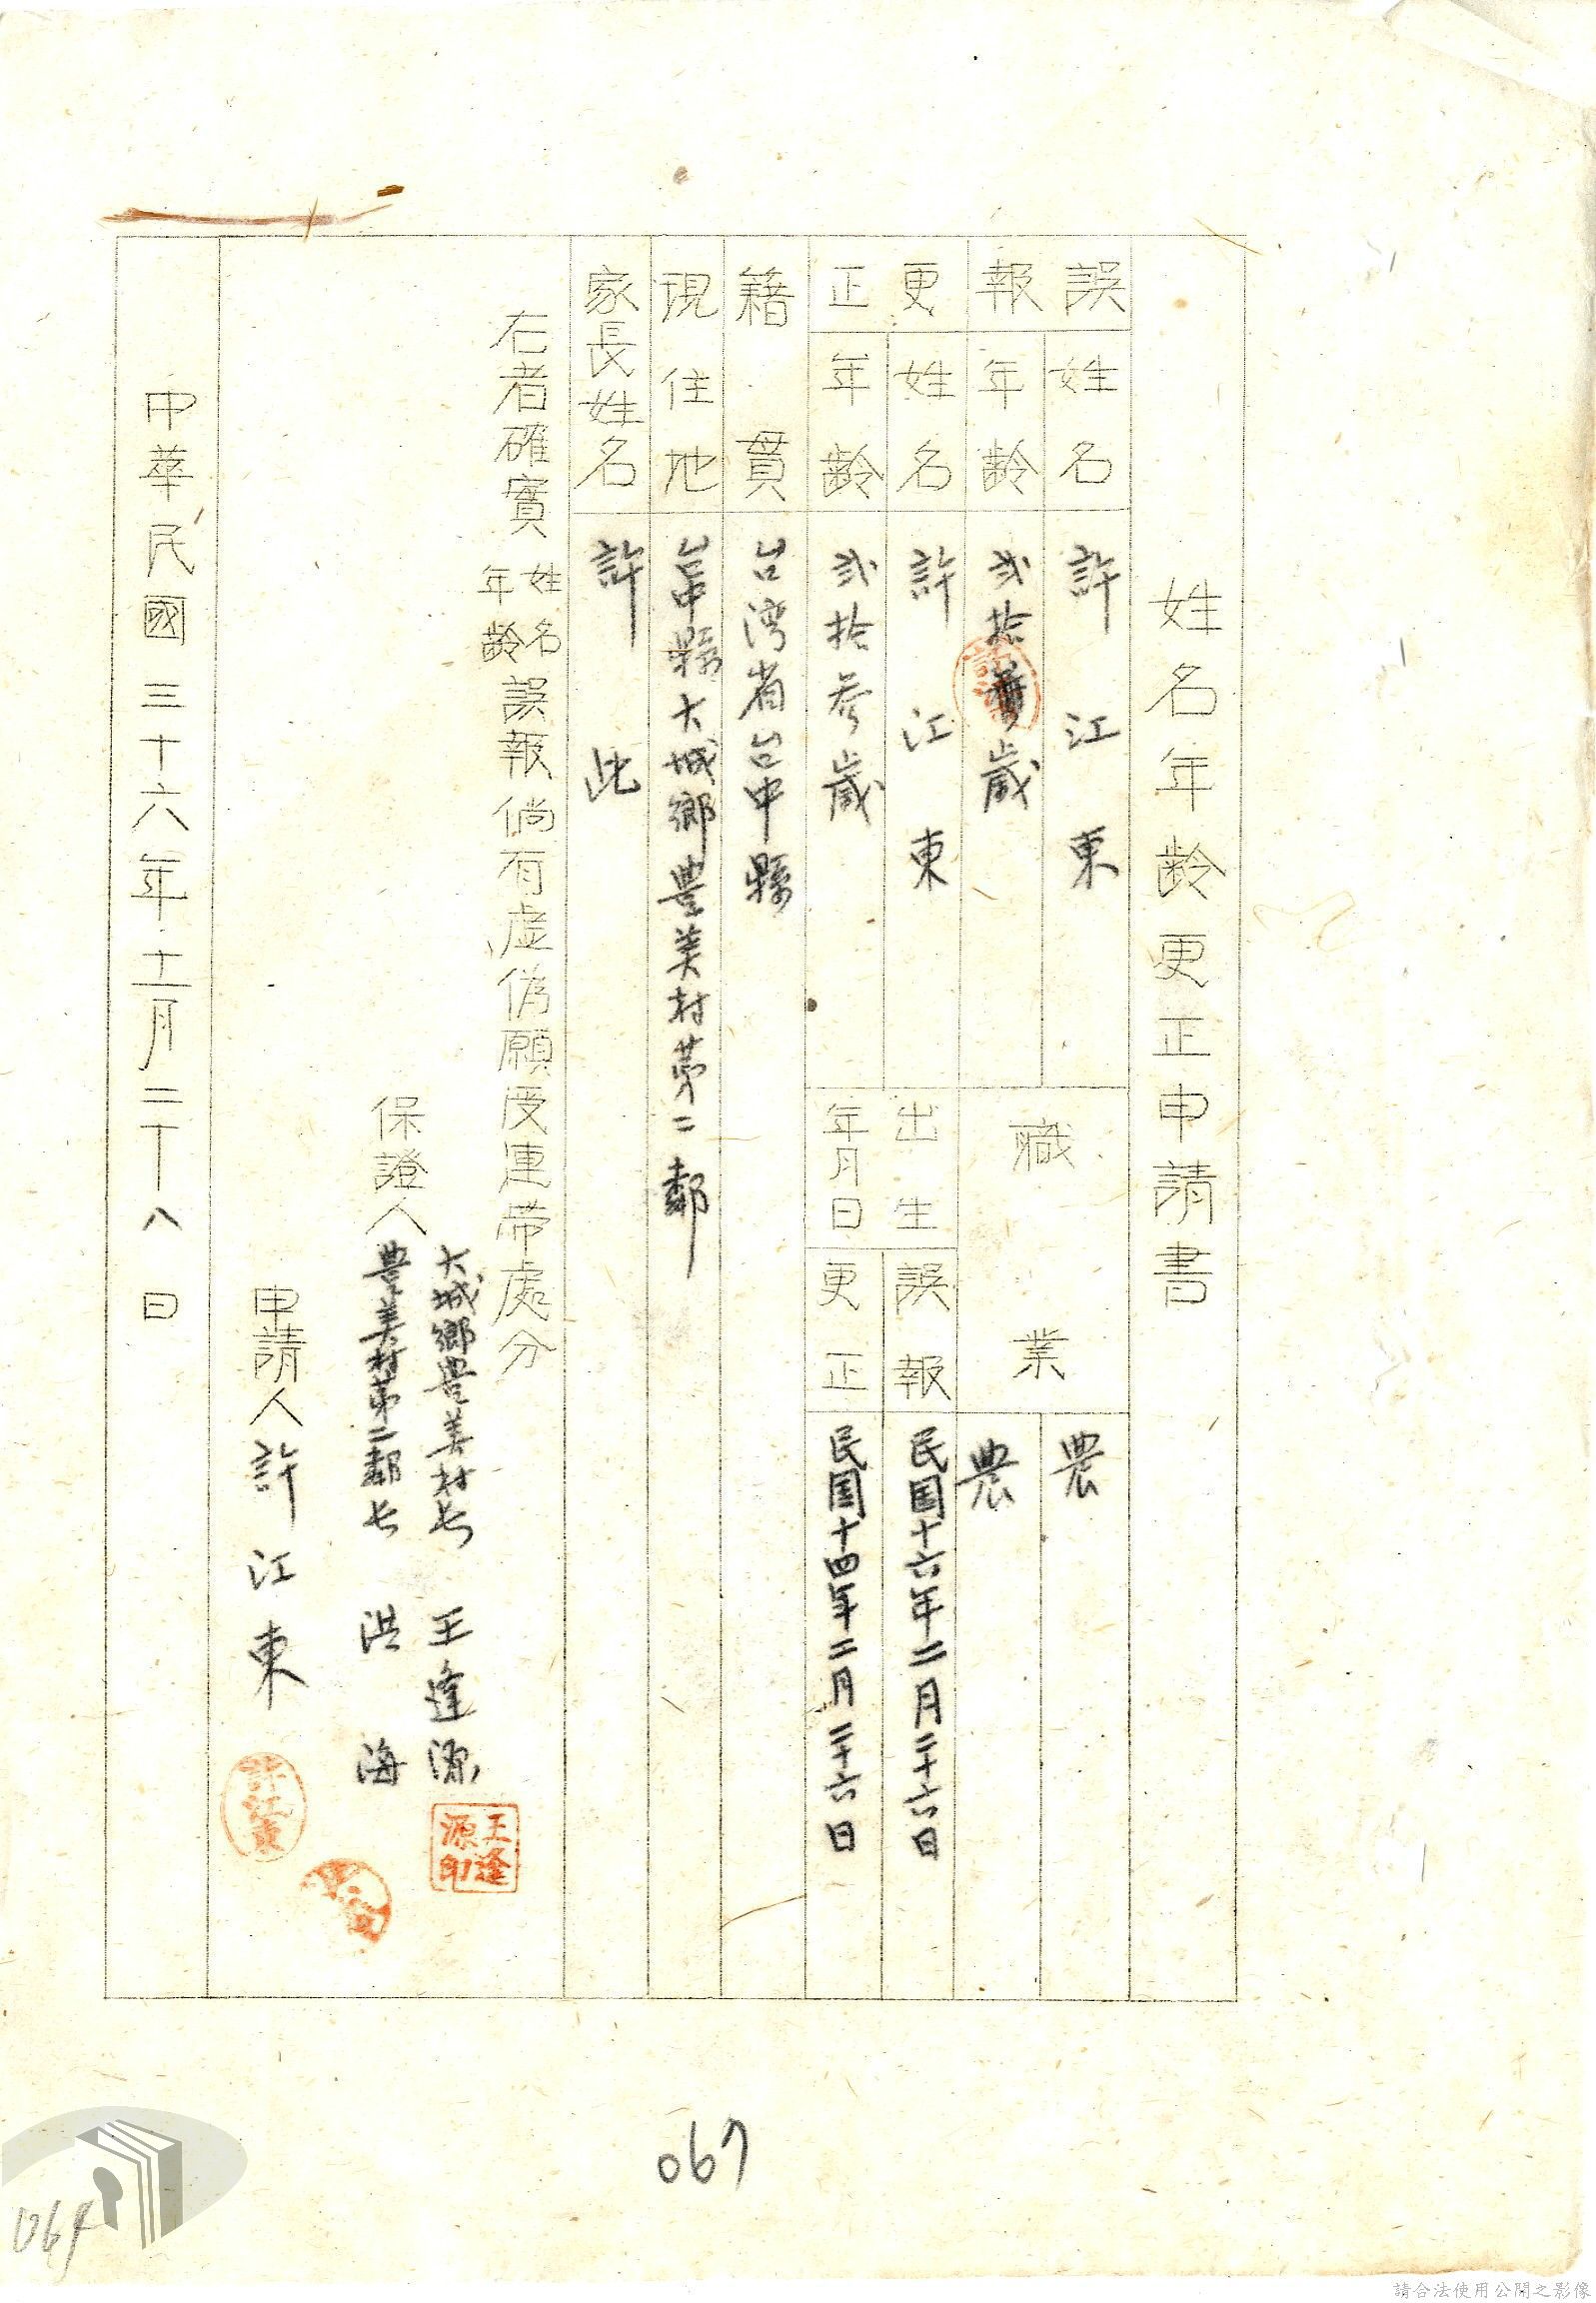 姓名年齡更正申請書
誤報
姓名
許江東
年齡
弍拾歲
職業
農
農
更正
姓名
許江東
年齡
弍拾參歲
出生年月日
誤報
民国十六年二月二十六日
更正
民国十四年二月二十六日
籍貫
台湾省台中縣
現住地
台中縣大城鄉豊美村第二鄰
家長姓名
許此
右者確實姓名年齡誤報倘有虛偽願受連帶處分
保證人
大城鄉豊美村長 王逢源
王逢源印
豊美村第二鄰長 洪海
申請人 許江東
許江東
中華民國三十六年十一月二十八日
067
064
請合法使用公開之影像